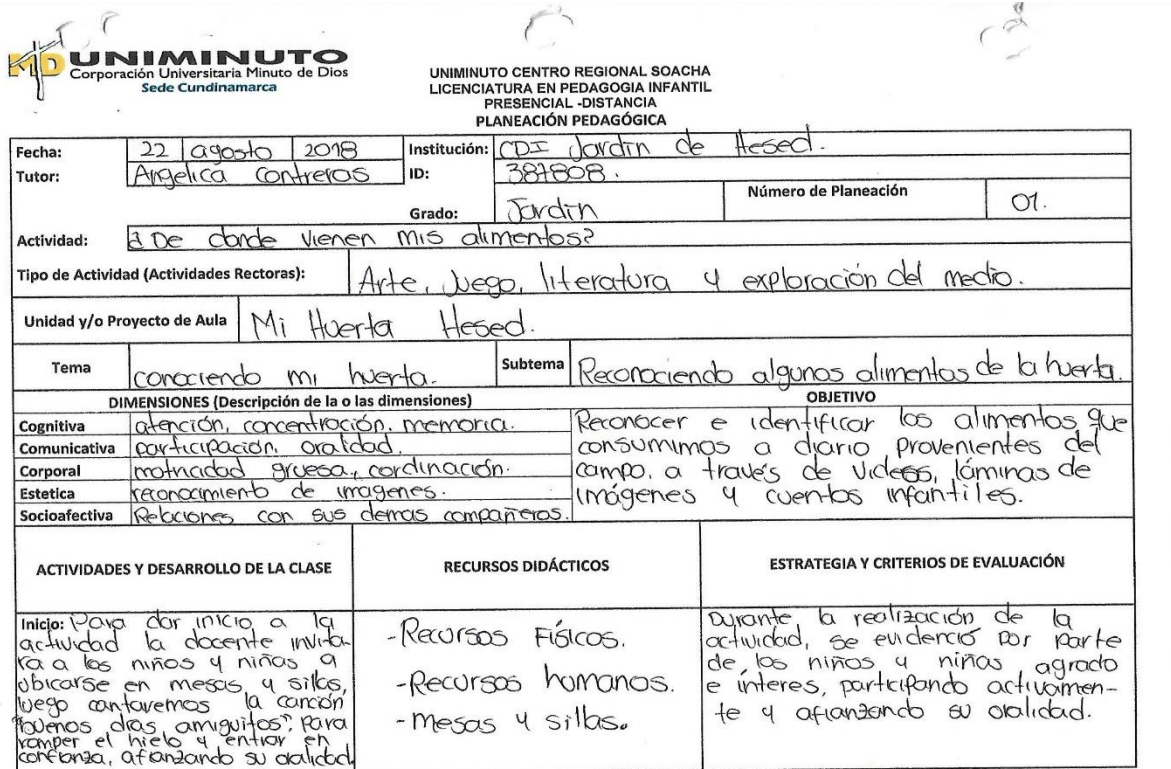 UNIMINUTO
Corporación Universitaria Minuto de Dios
Sede Cundinamarca
UNIMINUTO CENTRO REGIONAL SOACHA
LICENCIATURA EN PEDAGOGIA INFANTIL
PRESENCIAL -DISTANCIA
PLANEACIÓN PEDAGÓGICA
Fecha: 22 agosto 2018 Institución: CDI Jardin de Hesed.
Tutor: Angelica Contreras ID: 387808.
Grado: Jardin Número de Planeación 01.
Actividad: ¿De donde vienen mis alimentos?
Tipo de Actividad (Actividades Rectoras): Arte, Juego, literatura y exploración del medio.
Unidad y/o Proyecto de Aula Mi Huerta Hesed.
Tema conociendo mi huerta. Subtema Reconociendo algunos alimentos de la huerta.
DIMENSIONES (Descripción de la o las dimensiones)
Cognitiva atención, concentración, memoria.
Comunicativa participación, oralidad.
Corporal motricidad gruesa, cordinación.
Estetica reconocimiento de imagenes.
Socioafectiva Relaciones con sus demas compañeros.
OBJETIVO
Reconocer e identificar los alimentos que
consumimos a diario provenientes del
campo, a través de videos, láminas de
imágenes y cuentos infantiles.
ACTIVIDADES Y DESARROLLO DE LA CLASE
Inicio: Para dar inicio a la
actividad la docente invita-
ra a los niños y niños a
ubicarse en mesas y sillas,
luego cantaremos la canción
"buenos dias amiguitos", para
romper el hielo y entrar en
confianza, afianzando su oralidad
RECURSOS DIDÁCTICOS
-Recursos Físicos.
-Recursos humanos.
-mesas y sillas.
ESTRATEGIA Y CRITERIOS DE EVALUACIÓN
Durante la realización de la
actividad, se evidencio por parte
de los niños y niñas agrado
e interes, participando activamen-
te y afianzando su oralidad.